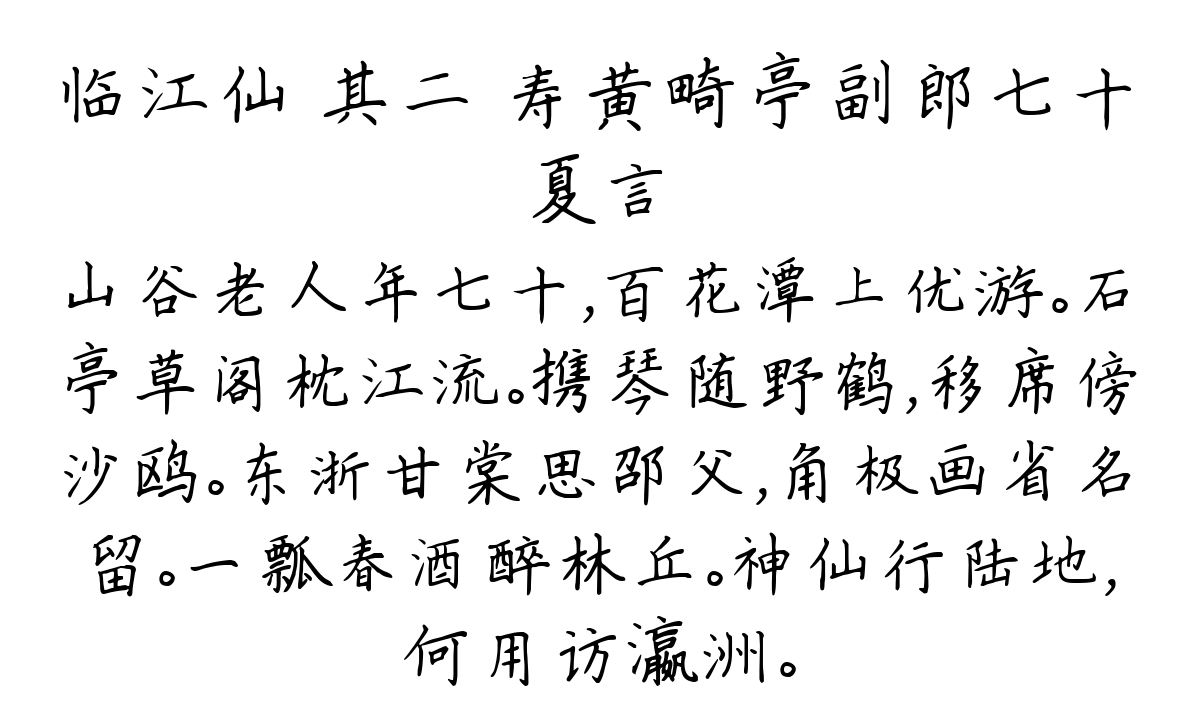 临江仙 其二 寿黄畸亭副郎七十
夏言
山谷老人年七十,百花潭上优游。石
亭草阁枕江流。携琴随野鹤,移席傍
沙鸥。东浙甘棠思邵父,角极画省名
留。一瓢春酒醉林丘。神仙行陆地,
何用访瀛洲。